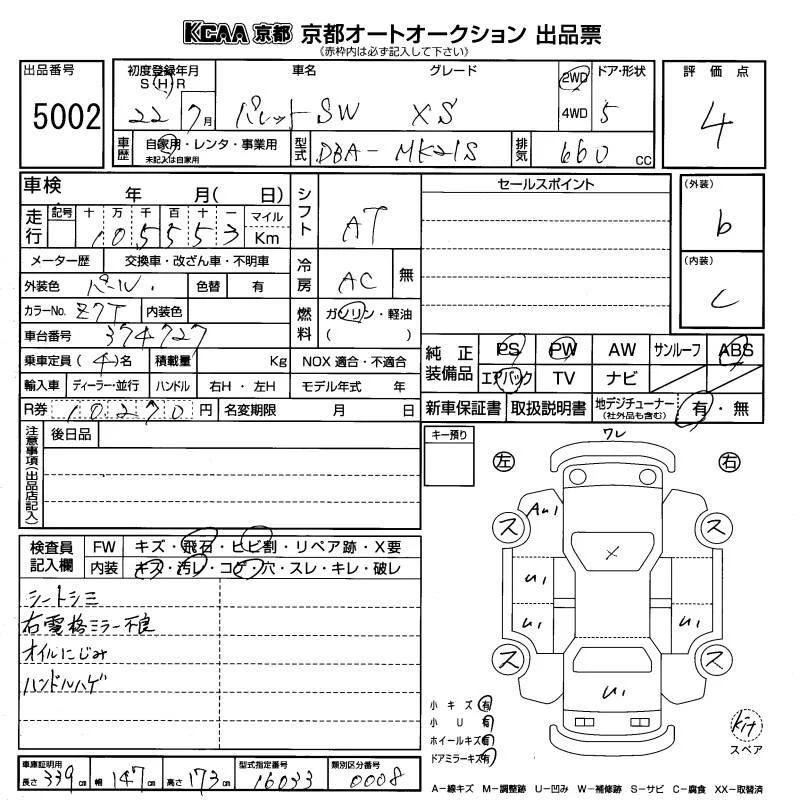 KCAA 京都 京都オートオークション 出品票
《赤枠内は必ず記入して下さい》
出品番号
5002
初度登録年月 車名 グレード 2WD ドア・形状
S H R
22 7月 パレットSW XS 4WD 5
車歴 自家用・レンタ・事業用 型式 DBA-MK21S 排気 660 CC
未記入は自家用
評価点
4
車検 年 月( 日) シフト AT
走行 記号 十 万 千 百 十 一 マイル
105553 Km
メーター歴 交換車・改ざん車・不明車 冷房 AC 無
外装色 パール. 色替 有
カラーNo. Z7T 内装色 燃料 ガソリン・軽油
( )
車台番号 374727
乗車定員 (4)名 積載量 Kg NOX 適合・不適合
輸入車 ディーラー・並行 ハンドル 右H・左H モデル年式 年
R券 10270 円 名変期限 月 日
セールスポイント
(外装)
b
(内装)
c
純正装備品 PS PW AW サンルーフ ABS
エアバック TV ナビ
新車保証書 取扱説明書 地デジチューナー (社外品も含む) 有・無
注意事項(出品店記入) 後日品
検査員記入欄 FW キズ・飛石・ヒビ割・リペア跡・X要
内装 キズ・汚レ・コゲ・穴・スレ・キレ・破レ
シートシミ
右電格ミラー不良
オイルにじみ
ハンドルハゲ
キー預り
ワレ
左 右
AU1
ス ス
X
U1
U1 U1
ス ス
U1
小キズ 有
小U 有
ホイールキズ 有
ドアミラーキズ 有
Kit
スペア
車庫証明用 長さ 339cm 幅 147cm 高さ 173cm 型式指定番号 16033 類別区分番号 0008
A−線キズ M−調整跡 U−凹み W−補修跡 S−サビ C−腐食 XX−取替済